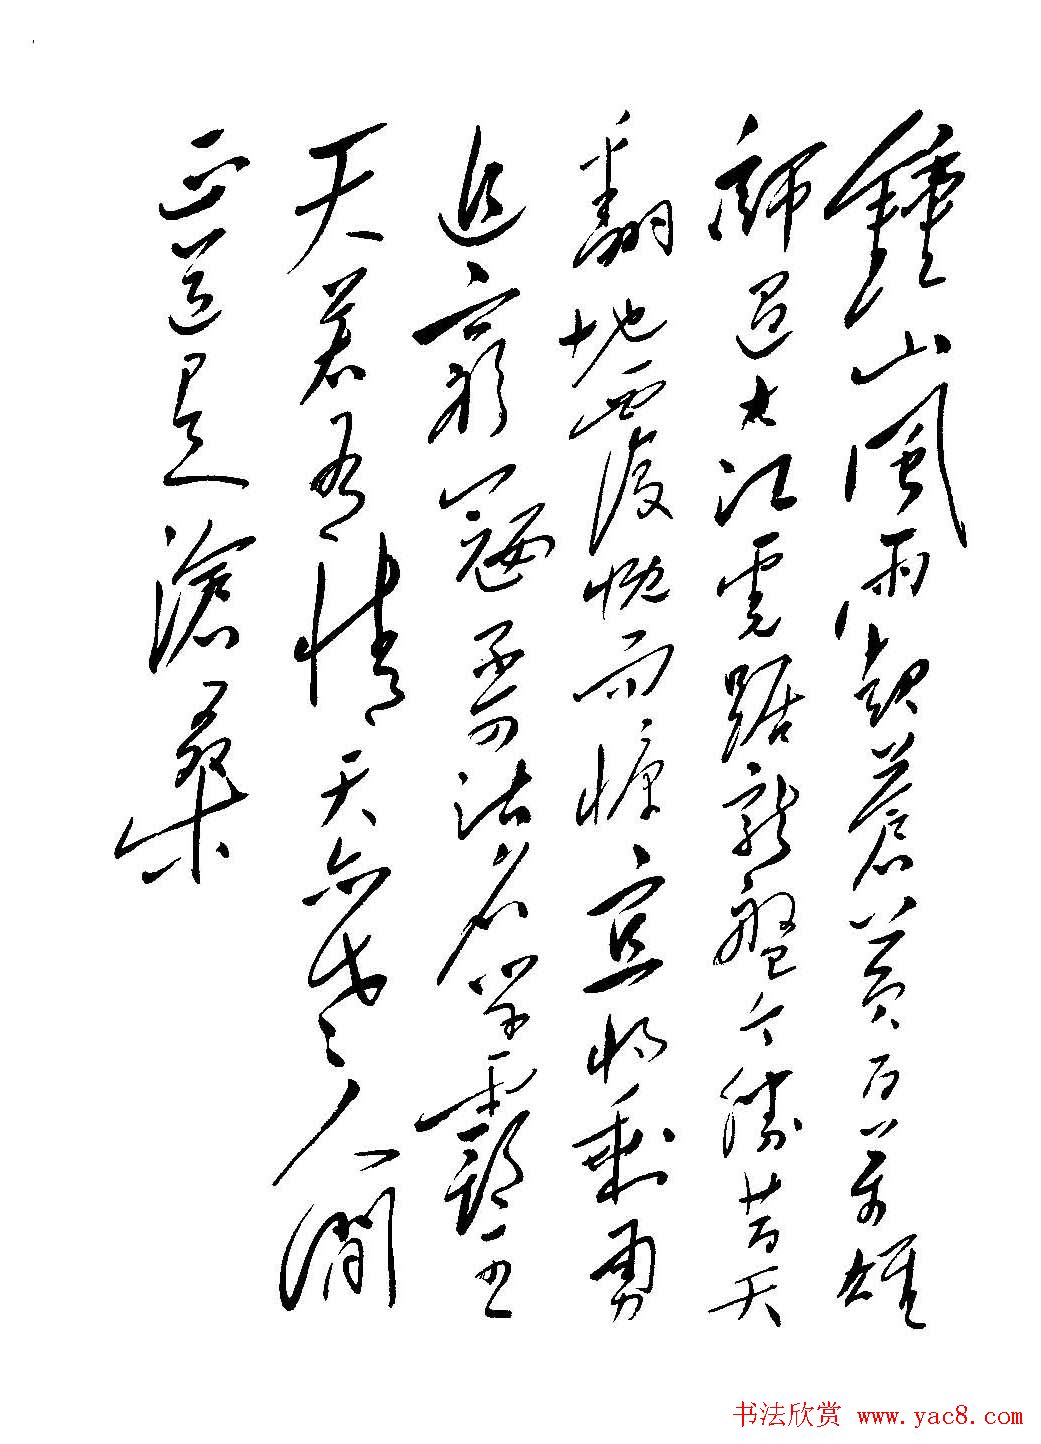 鍾山風雨起蒼黃百萬雄
師過大江虎踞龍盤今勝昔天
翻地覆慨而慷宜將剩勇
追窮寇不可沽名學霸王
天若有情天亦老人間
正道是滄桑
书法欣赏 www.yac8.com